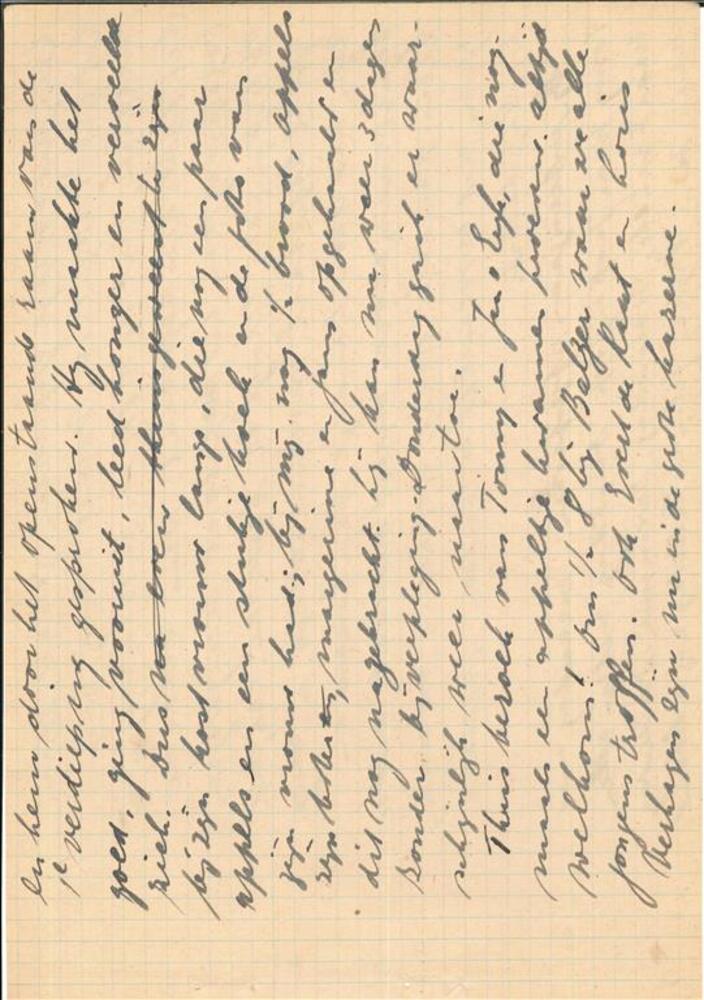 en hem door het openstaande raam van de
1e verdieping gesproken. Hij maakte het
goed, ging vooruit, leed honger en verveelde
zich. Dus na even thuis geweest te zijn
bij zijn kostvrouw langs, die nog een paar
appels en een stukje koek en de foto van
zijn vrouw had; bij mij nog ½ brood, appels
zijn boter en margarine en jam opgehaald en
dit nog nagebracht. Hij kan nu weer 3 dagen
zonder bijverpleging. Donderdag ga ik er waar-
schijnlijk weer naar toe.
Thuis bezoek van Tonny en die nog-
maals een appeltje kwamen proeven. altijd
welkom! Om ½ 8 bij Belzer waar we alle
jongens troffen. Ook Evert de Raat en
Verhagen zijn nu in de grote kazerne.